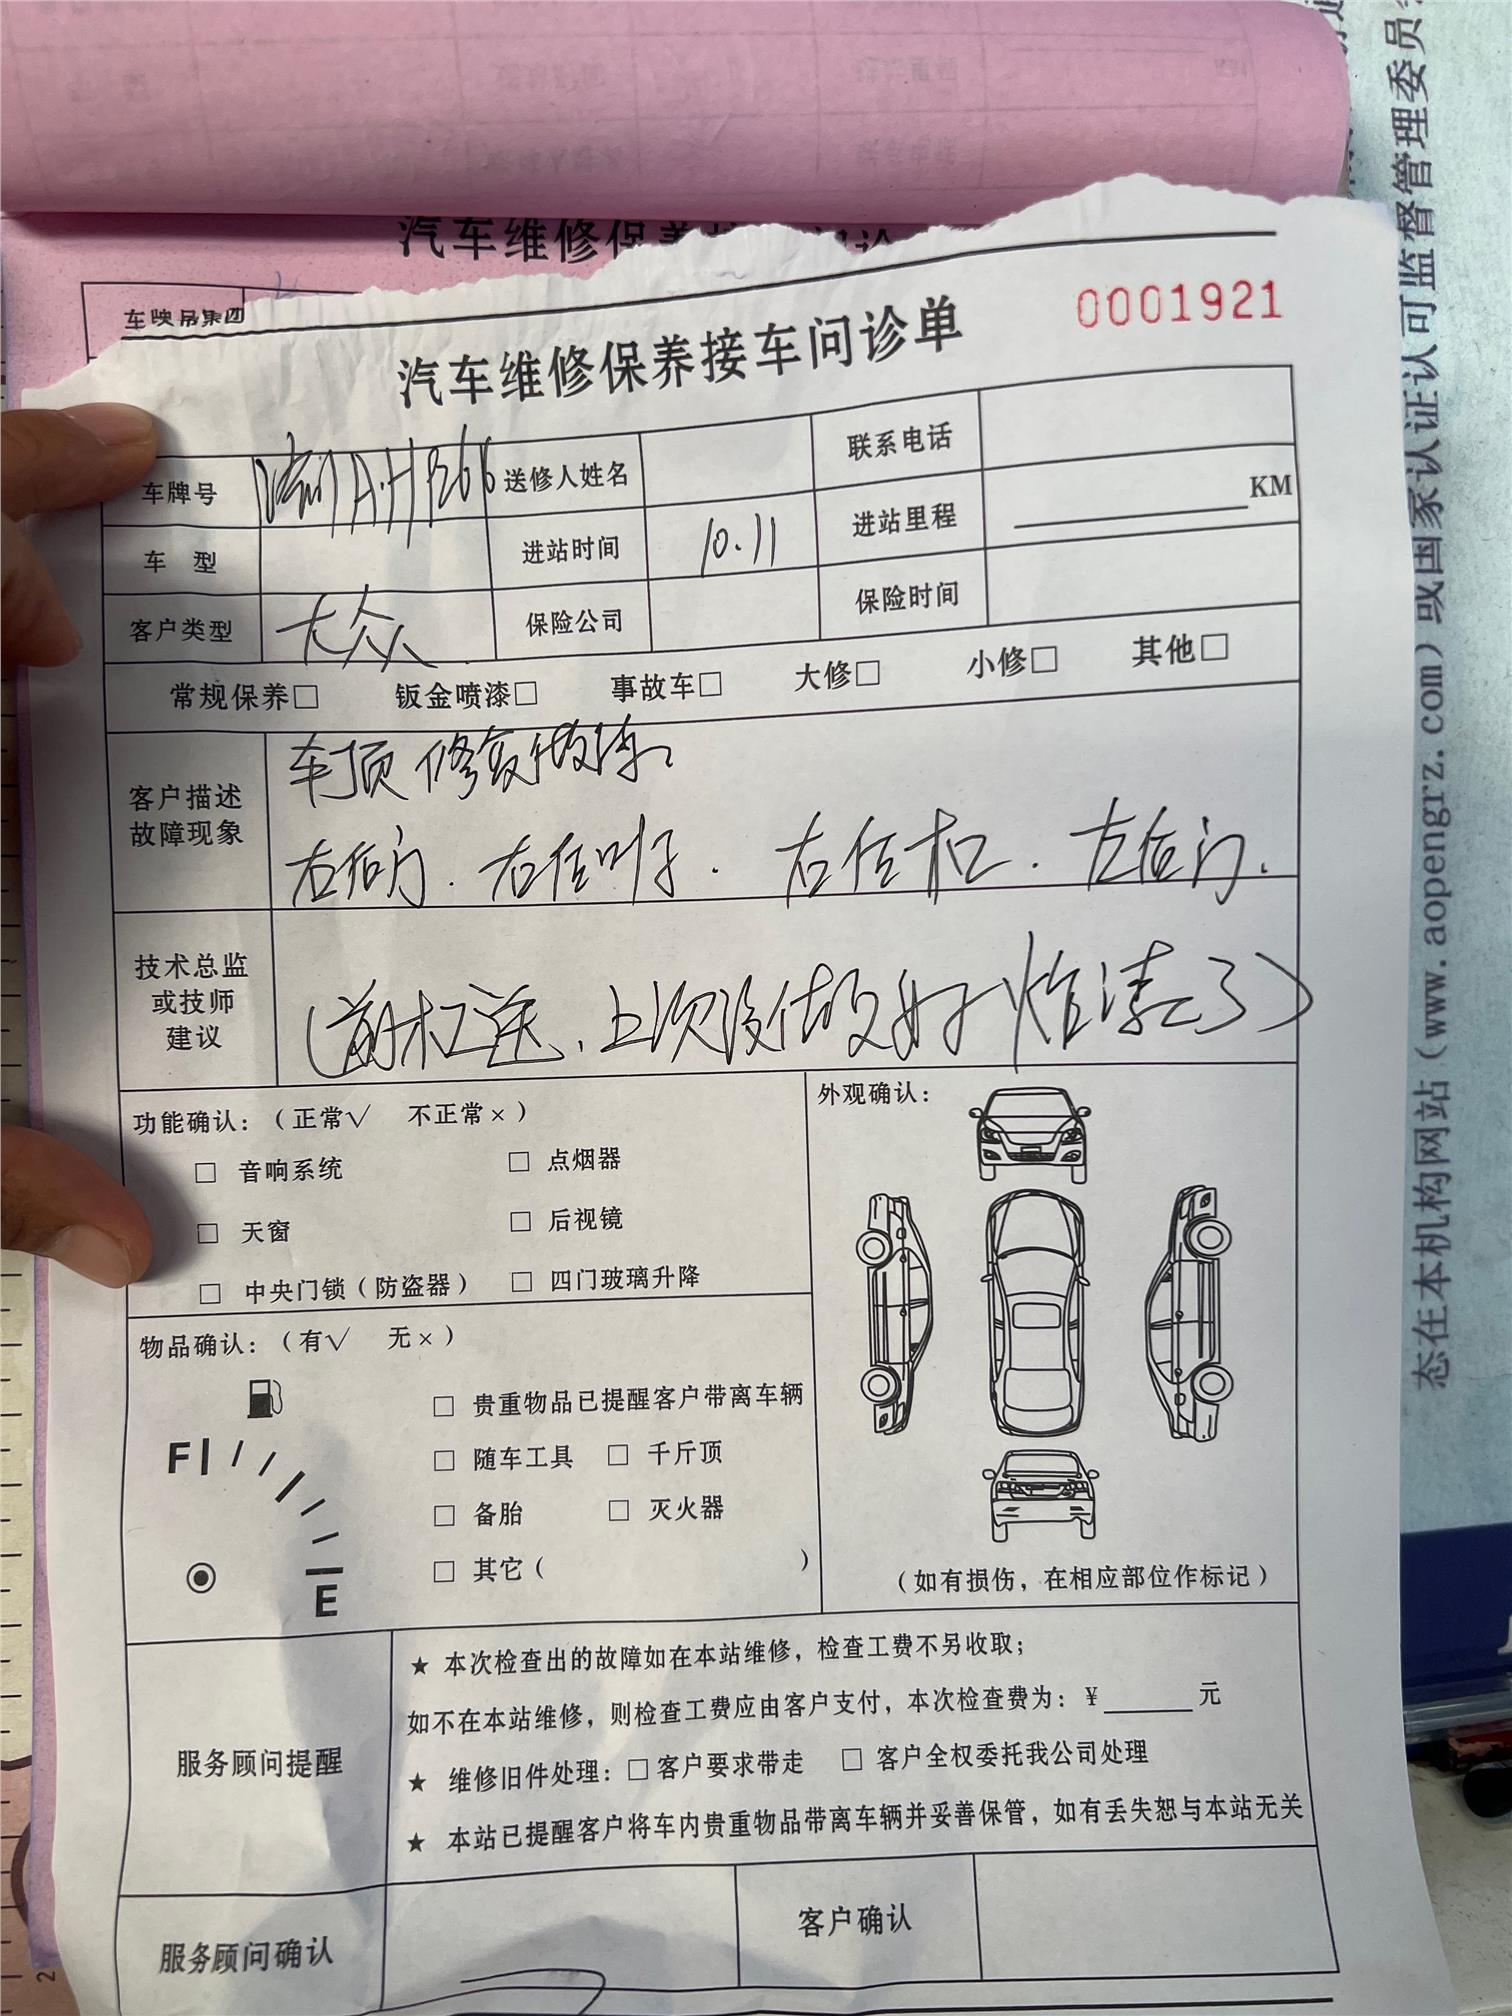 汽车维修保养接车问诊单
车映吊集团
0001921
汽车维修保养接车问诊单
车牌号 A·H 送修人姓名 联系电话
车 型 进站时间 10.11 进站里程 KM
客户类型 大众 保险公司 保险时间
常规保养□ 钣金喷漆□ 事故车□ 大修□ 小修□ 其他□
客户描述
故障现象
车顶修复做漆。
右后门. 右后叶子. 右后杠. 左后门.
技术总监
或技师
建议
(前杠送, 上次没做好 炸漆了)
功能确认：（正常√ 不正常×）
□ 音响系统 □ 点烟器
□ 天窗 □ 后视镜
□ 中央门锁（防盗器） □ 四门玻璃升降
外观确认：
（如有损伤，在相应部位作标记）
物品确认：（有√ 无×）
F
E
□ 贵重物品已提醒客户带离车辆
□ 随车工具 □ 千斤顶
□ 备胎 □ 灭火器
□ 其它（ ）
服务顾问提醒
★ 本次检查出的故障如在本站维修，检查工费不另收取；
如不在本站维修，则检查工费应由客户支付，本次检查费为：¥______元
★ 维修旧件处理：□客户要求带走 □ 客户全权委托我公司处理
★ 本站已提醒客户将车内贵重物品带离车辆并妥善保管，如有丢失恕与本站无关
服务顾问确认 客户确认
态在本机构网站（www.aopengrz.com）或国家认证认可监督管理委员